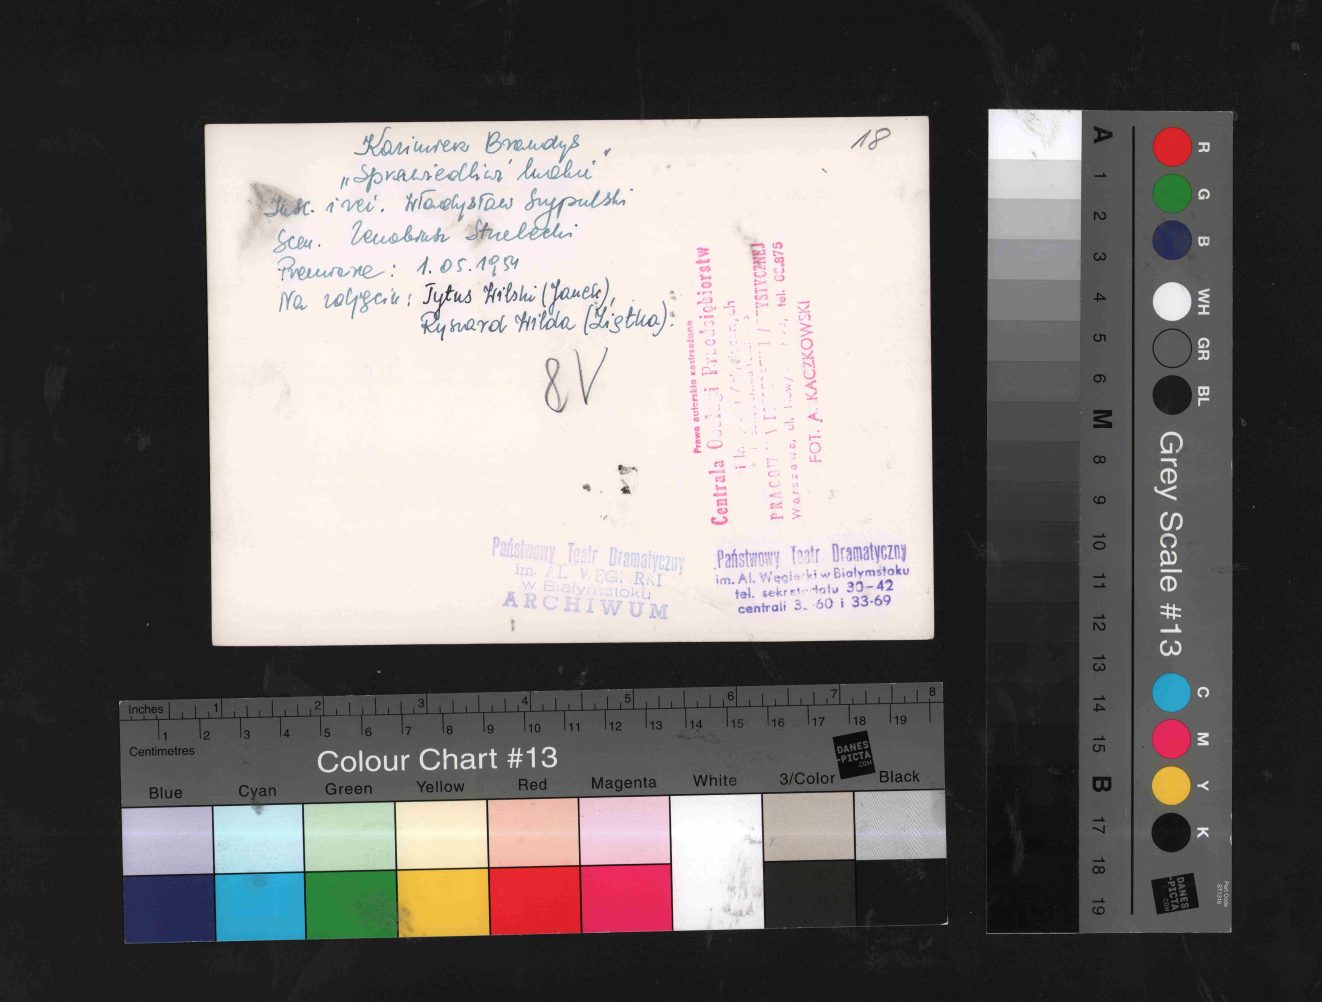 18
Kazimierz Brandys
„Sprawiedliwi ludzie"
Insc. i reż. Władysław Szypulski
Scen. Zenobiusz Strzelecki
Premiera: 1.05.1954
Na zdjęciu: Tytus Wilski (Janek),
Ryszard Wilda (Ziętka).
8V
Prawa autorskie zastrzeżone
Centrala Obsługi Przedsiębiorstw
Warszawa, ul. tel.
FOT. A. KACZKOWSKI
Państwowy Teatr Dramatyczny
im. AL.
w Białymstoku
ARCHIWUM
Państwowy Teatr Dramatyczny
im. Al. Węgierki w Białymstoku
tel. sekretariatu 30-42
centrali i 33-69
Inches 1 2 3 4 5 6 7 8
1 2 3 4 5 6 7 8 9 10 11 12 13 14 15 16 17 18 19
Centimetres
Colour Chart #13
DANES
-PICTA
.COM
Blue Cyan Green Yellow Red Magenta White 3/Color Black
A 1 2 3 4 5 6 M 8 9 10 11 12 13 14 15 B 17 18 19
R G B WH GR BL
Grey Scale #13
C M Y K
DANES
-PICTA
.COM
Part Code
ST1316